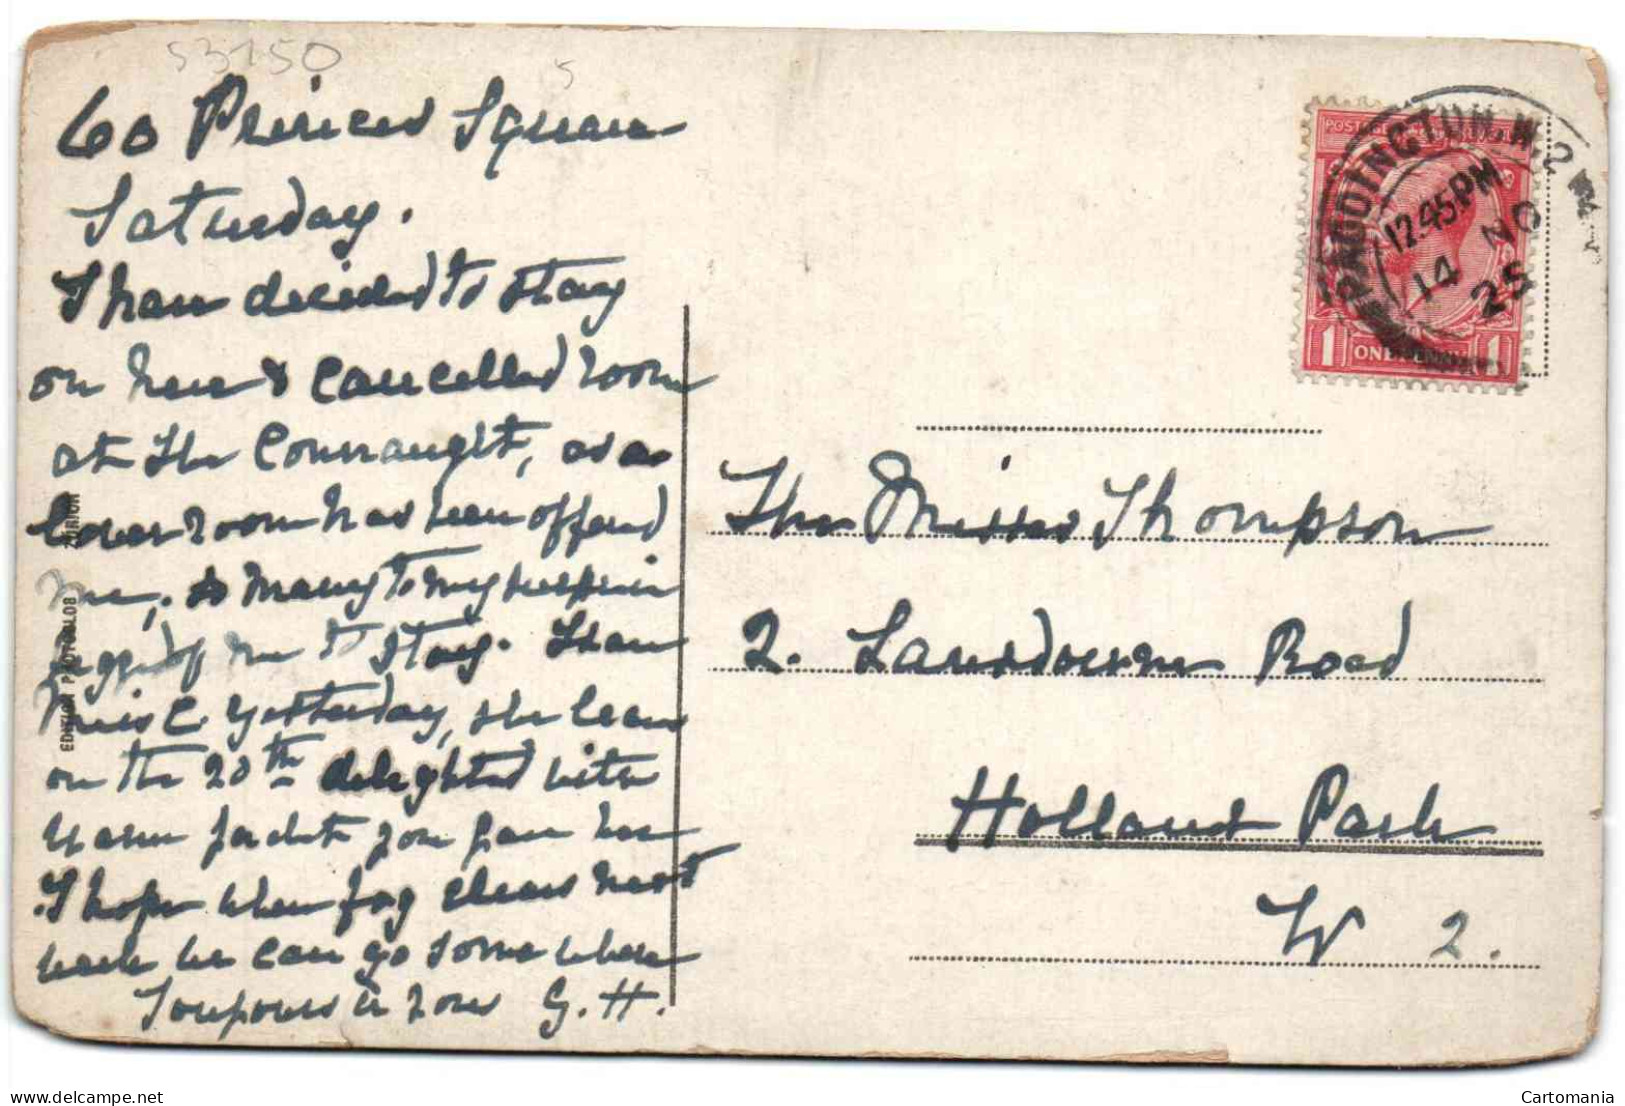 53150
5
60 Princes Square
Saturday.
I have decided to stay
on here & cancelled room
at the Connaught, as a
lower room has been offered
me, & many to my surprise
begged of me to stay. I saw
Miss C yesterday, she leaves
on the 20th delighted with
warm jacket you gave her
I hope when fog clears next
week we can go somewhere
Toujours à vous G.H.
EDITION PHOTOGLOB ZÜRICH
POSTAGE
ONE
1 1
PADDINGTON. W.2
12.45 PM
14 NO
25
The Misses Thompson
2. Lansdowne Road
Holland Park
W 2.
Cartomania